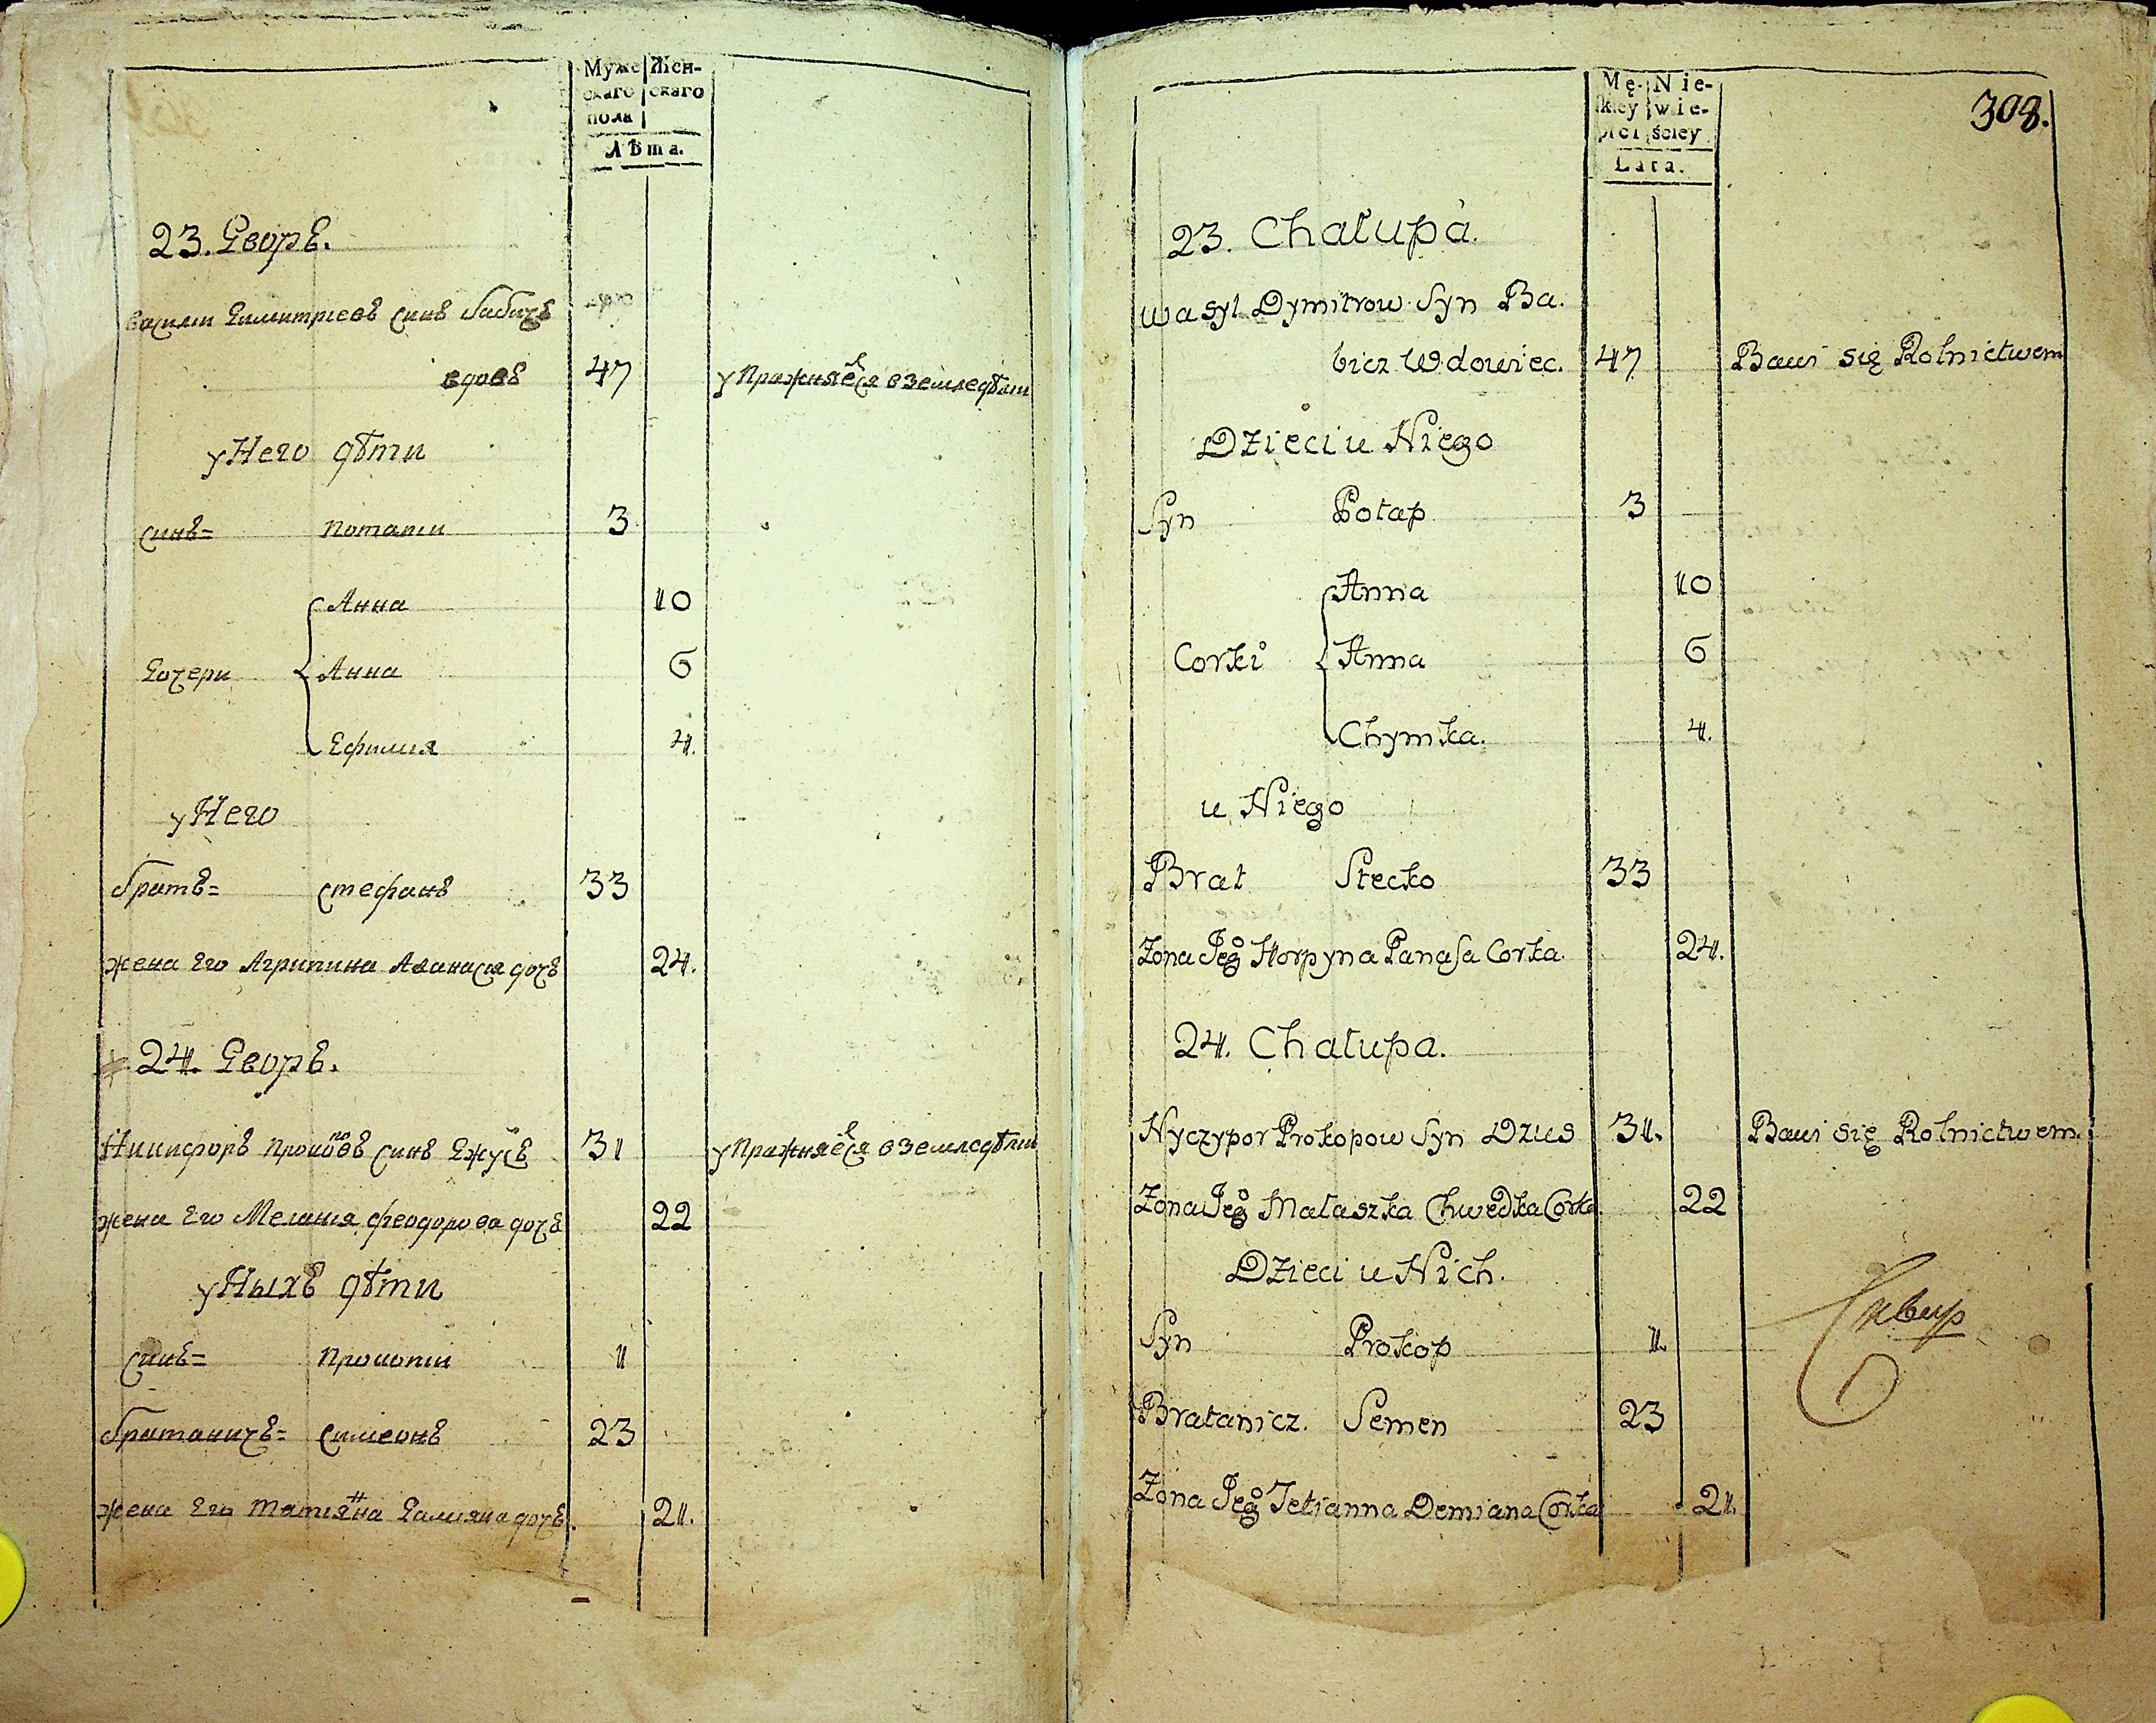 Муже
скаго
пола
Жен-
скаго
Лѣта.
23. Дворъ.
Василии Димитриевъ синъ бабичъ
вдовъ 47 упражняется в земледѣлии
у Него дѣти
синъ= Потапи 3
Анна 10
Дочери Анна 6
Ефимия 4.
у Него
братъ= Стефанъ 33
жена Его Агрипина Аѳанасия дочъ 24.
24. Дворъ.
Никифоръ Прокоповъ синъ Джусъ 31 упражняется в земледѣлии
жена Его Мелания Феодорова дочъ 22
у Ныхъ дѣти
синъ= Прокопи 1
братаничъ= Симеонъ 23
жена Его Татиянна Дамияна дочъ. 21.
308.
Mę-
skiey
płci
Nie-
wie-
ściey
Lata.
23. Chałupa.
Wasyl Dymitrow Syn Ba.
bicz Wdowiec. 47 Bawi się Rolnictwem
Dzieci u Niego
Syn Potap 3
Anna 10
Corki Anna 6
Chymka. 4.
u Niego
Brat Stecko 33
Zona Jego Horpyna Panasa Corka 24.
24. Chałupa.
Nyczypor Prokopow Syn Dzus 31. Bawi się Rolnictwem.
Zona Jego Małaszka Chwedka Corka 22
Dzieci u Nich.
Syn Prokop 1.
Bratanicz. Semen 23
Zona Jego Tetianna Demiana Corka 21.